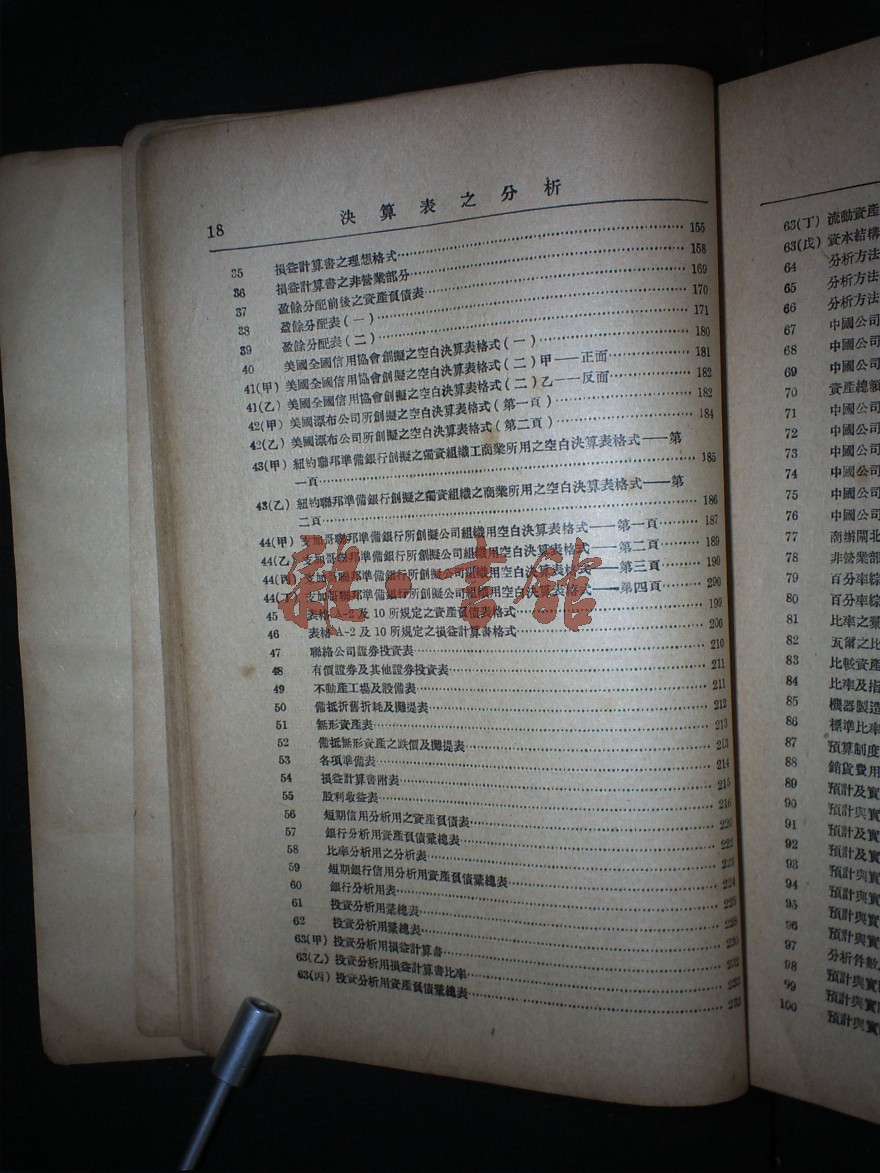 18
決算表之分析
35 損益計算書之理想格式 155
36 損益計算書之非營業部分 158
37 盈餘分配前後之資產負債表 169
38 盈餘分配表(一) 170
39 盈餘分配表(二) 171
40 美國全國信用協會創擬之空白決算表格式(一) 180
41(甲) 美國全國信用協會創擬之空白決算表格式(二)甲——正面 181
41(乙) 美國全國信用協會創擬之空白決算表格式(二)乙——反面 182
42(甲) 美國瀑布公司所創擬之空白決算表格式(第一頁) 182
42(乙) 美國瀑布公司所創擬之空白決算表格式(第二頁) 184
43(甲) 紐約聯邦準備銀行創擬之獨資組織工商業所用之空白決算表格式——第
一頁 185
43(乙) 紐約聯邦準備銀行創擬之獨資組織之商業所用之空白決算表格式——第
二頁 186
44(甲) 支加哥聯邦準備銀行所創擬公司組織用空白決算表格式——第一頁 187
44(乙) 支加哥聯邦準備銀行所創擬公司組織用空白決算表格式——第二頁 189
44(丙) 支加哥聯邦準備銀行所創擬公司組織用空白決算表格式——第三頁 190
44(丁) 支加哥聯邦準備銀行所創擬公司組織用空白決算表格式——第四頁 290
45 表格 A-2 及 10 所規定之資產負債表格式 199
46 表格 A-2 及 10 所規定之損益計算書格式 200
47 聯絡公司證券投資表 210
48 有價證券及其他證券投資表 211
49 不動產工場及設備表 211
50 備抵折舊折耗及攤提表 212
51 無形資產表 213
52 備抵無形資產之跌價及攤提表 213
53 各項準備表 214
54 損益計算書附表 215
55 股利收益表 216
56 短期信用分析用之資產負債表 220
57 銀行分析用資產負債彙總表 222
58 比率分析用之分析表 223
59 短期銀行信用分析用資產負債彙總表 224
60 銀行分析用表 226
61 投資分析用彙總表 228
62 投資分析用彙總表 230
63(甲) 投資分析用損益計算書 232
63(乙) 投資分析用損益計算書比率 233
63(丙) 投資分析用資產負債彙總表 233
63(丁) 流動資產
63(戊) 資本結構
64 分析方法
65 分析方法
66 分析方法
67 中國公司
68 中國公司
69 中國公司
70 資產總額
71 中國公司
72 中國公司
73 中國公司
74 中國公司
75 中國公司
76 中國公司
77 商辦閘北
78 非營業部
79 百分率綜
80 百分率綜
81 比率之彙
82 瓦爾之比
83 比較資產
84 比率及指
85 機器製造
86 標準比率
87 預算制度
88 銷貨費用
89 預計及實
90 預計與實
91 預計及實
92 預計及實
93 預計與實
94 預計與實
95 預計與實
96 預計與實
97 分析件數
98 預計與實
99 預計與實
100 預計與實
雜·書館